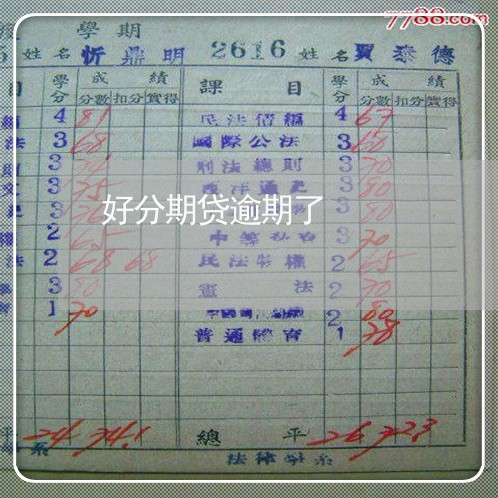 7788.com
學期
姓名 忻鼎明 2616 姓名 賈泰德
目 學分 成績 課目 學分 成績
分數 扣分 實得 分數 扣分 實得
4 81 民法債編 4 67
法 3 68 國際公法 3 60
3 刑法總則 3 70
3 75 西洋通史 3 80
3 3 80
好分期贷逾期了
權 2 65 3 70
法 2 68 68 民法物權 2 65
3 80 憲法 2 70
1 70 2 80
普通體育 1 78
平 24 74.1 總平 26 72.3
系 法律學系